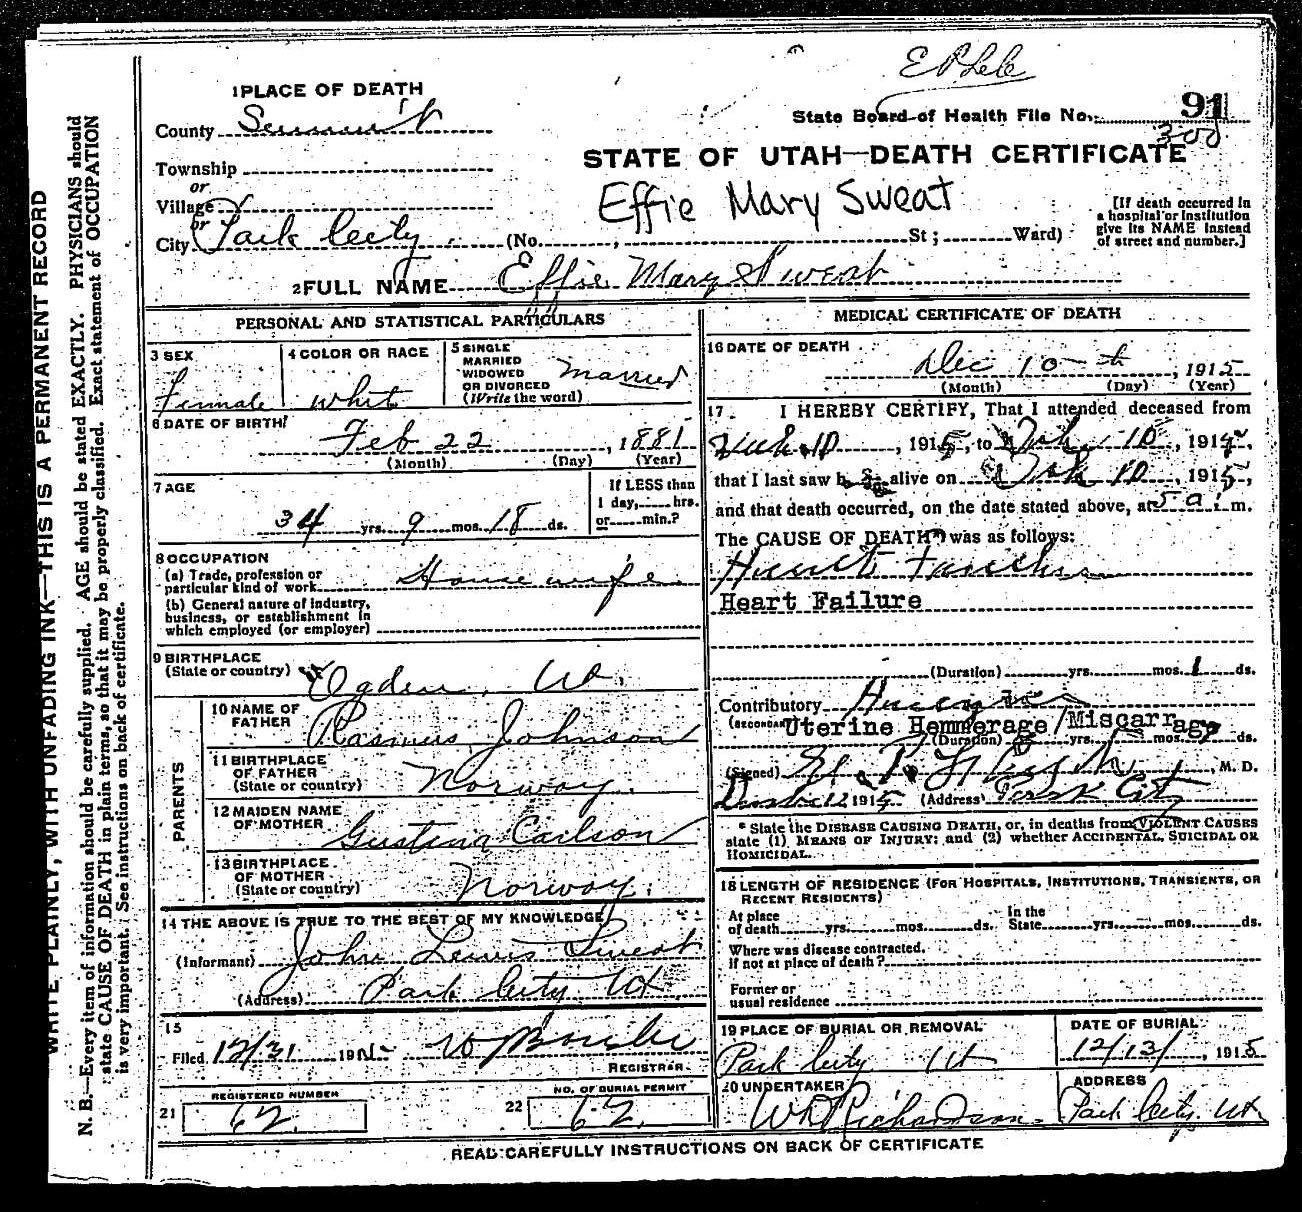 1 PLACE OF DEATH
County Summit
Township
or
Village
or
City Park City (No. ; St ; Ward)
State Board of Health File No. 91
300
STATE OF UTAH—DEATH CERTIFICATE
Effie Mary Sweat
[If death occurred in
a hospital or institution
give its NAME instead
of street and number.]
2 FULL NAME Effie Mary Sweat
PERSONAL AND STATISTICAL PARTICULARS
3 SEX
Female
4 COLOR OR RACE
whit
5 SINGLE
MARRIED
WIDOWED
OR DIVORCED
(Write the word)
Married
6 DATE OF BIRTH
Feb 22, 1881
(Month) (Day) (Year)
7 AGE
34 yrs. 9 mos. 18 ds.
If LESS than
1 day, hrs.
or min.?
8 OCCUPATION
(a) Trade, profession or
particular kind of work House wife
(b) General nature of industry,
business, or establishment in
which employed (or employer)
9 BIRTHPLACE
(State or country) Ogden, Ut.
PARENTS
10 NAME OF
FATHER Rasmus Johnson
11 BIRTHPLACE
OF FATHER
(State or country) Norway.
12 MAIDEN NAME
OF MOTHER Gustina Carlson
13 BIRTHPLACE
OF MOTHER
(State or country) Norway.
14 THE ABOVE IS TRUE TO THE BEST OF MY KNOWLEDGE
(Informant) John Lewis Sweat
(Address) Park City Ut
15
Filed 12/31 191
REGISTRAR
REGISTERED NUMBER
21 62
NO. OF BURIAL PERMIT
22 62
MEDICAL CERTIFICATE OF DEATH
16 DATE OF DEATH
Dec 10th, 1915
(Month) (Day) (Year)
17 I HEREBY CERTIFY, That I attended deceased from
10, 1915, to 10, 191
that I last saw h alive on 10, 1915,
and that death occurred, on the date stated above, at 5 a. m.
The CAUSE OF DEATH* was as follows:
Heart Failure
(Duration) yrs. mos. 1 ds.
Contributory
(SECONDARY) Uterine Hemmerage/Miscarrage
(Duration) yrs. mos. ds.
(Signed) M. D.
12 1915 (Address) Park City
* State the DISEASE CAUSING DEATH, or, in deaths from VIOLENT CAUSES
state (1) MEANS OF INJURY; and (2) whether ACCIDENTAL, SUICIDAL OR
HOMICIDAL.
18 LENGTH OF RESIDENCE (FOR HOSPITALS, INSTITUTIONS, TRANSIENTS, OR
RECENT RESIDENTS)
At place
of death yrs. mos. ds.
In the
State yrs. mos. ds.
Where was disease contracted.
If not at place of death?
Former or
usual residence
19 PLACE OF BURIAL OR REMOVAL
Park City Ut
DATE OF BURIAL
12/13/, 1915
20 UNDERTAKER
W D Richardson
ADDRESS
Park City. Ut
READ CAREFULLY INSTRUCTIONS ON BACK OF CERTIFICATE
WRITE PLAINLY, WITH UNFADING INK—THIS IS A PERMANENT RECORD
N. B.—Every item of information should be carefully supplied. AGE should be stated EXACTLY. PHYSICIANS should
state CAUSE OF DEATH in plain terms, so that it may be properly classified. Exact statement of OCCUPATION
is very important. See instructions on back of certificate.